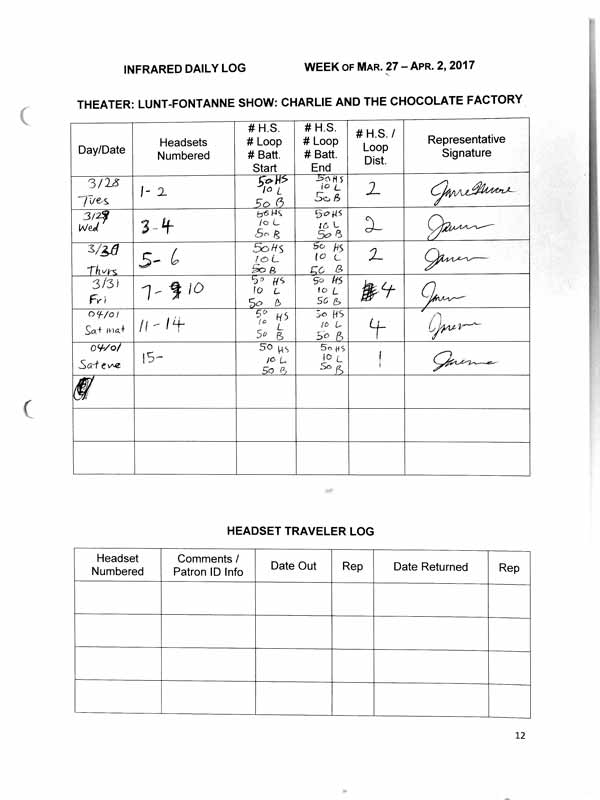 INFRARED DAILY LOG WEEK OF MAR. 27 – APR. 2, 2017
THEATER: LUNT-FONTANNE SHOW: CHARLIE AND THE CHOCOLATE FACTORY
Day/Date
Headsets
Numbered
# H.S.
# Loop
# Batt.
Start
# H.S.
# Loop
# Batt.
End
# H.S. /
Loop
Dist.
Representative
Signature
3/28
Tues
1-2
50 HS
10 L
50 B
50 HS
10 L
50 B
2
3/29
Wed
3-4
50 HS
10 L
50 B
50 HS
10 L
50 B
2
3/30
Thurs
5-6
50 HS
10 L
50 B
50 HS
10 L
50 B
2
3/31
Fri
7- 10
50 HS
10 L
50 B
50 HS
10 L
50 B
4
04/01
Sat mat
11-14
50 HS
10 L
50 B
50 HS
10 L
50 B
4
04/01
Sat eve
15-
50 HS
10 L
50 B
50 HS
10 L
50 B
1
HEADSET TRAVELER LOG
Headset
Numbered
Comments /
Patron ID Info
Date Out
Rep
Date Returned
Rep
12